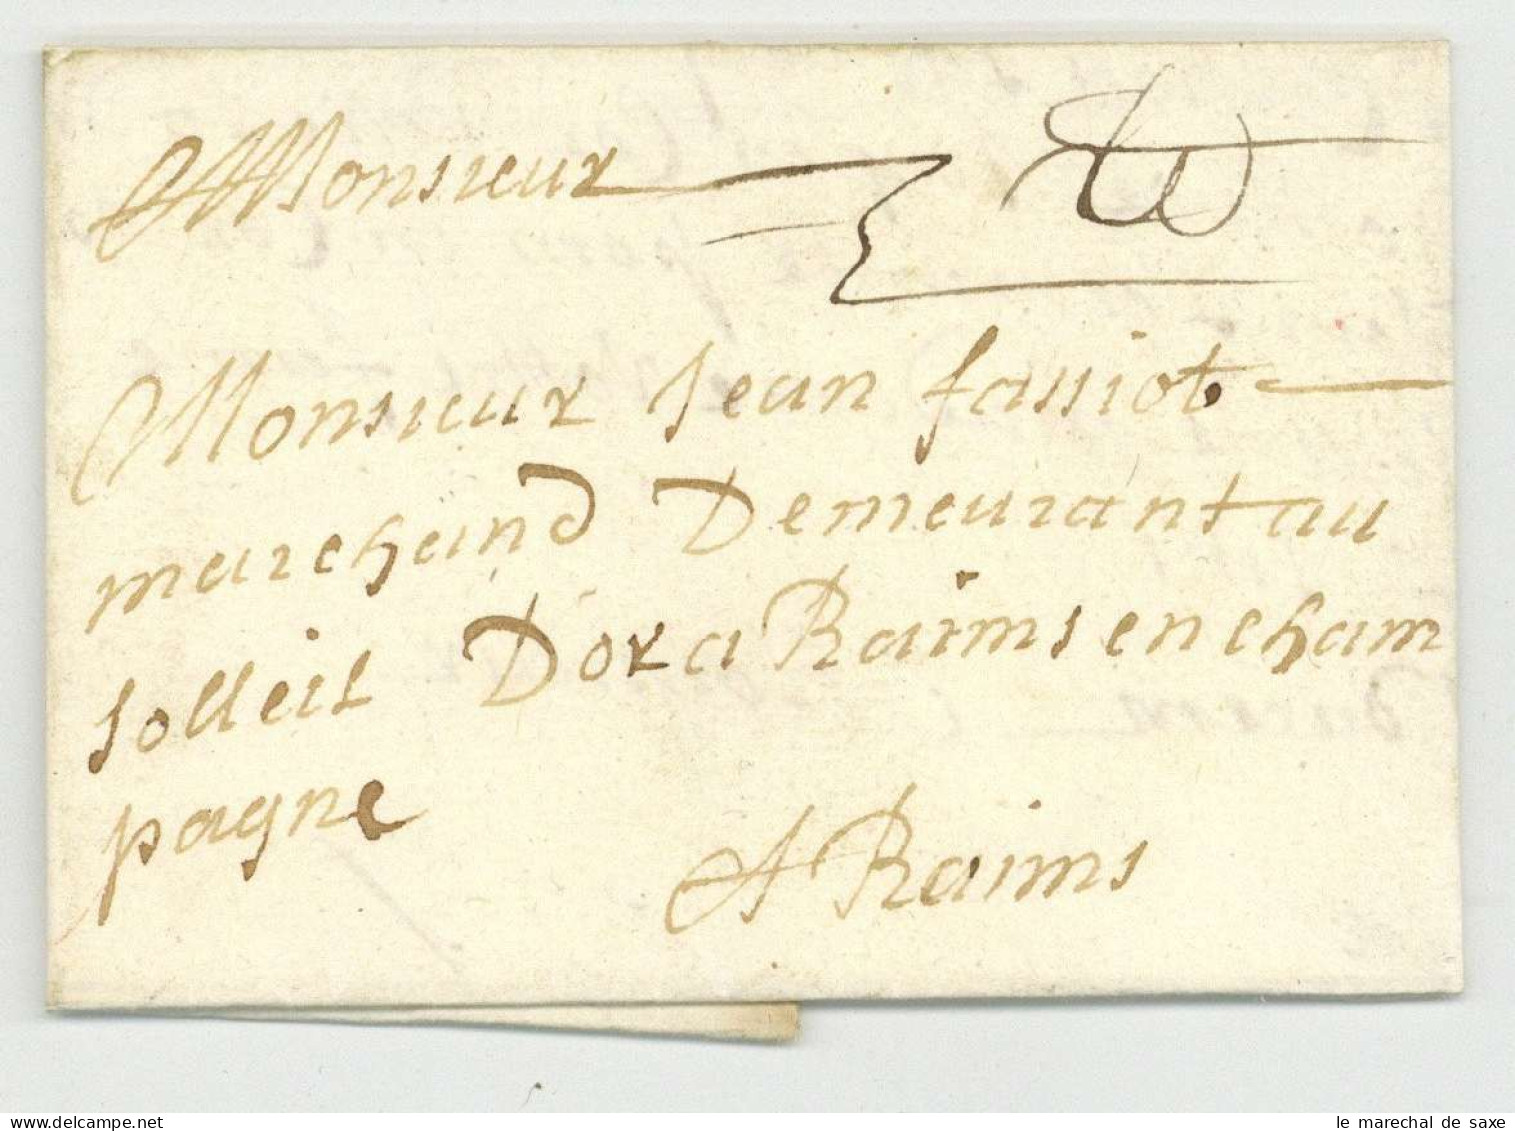 Monsieur
Monsieur Jean fassiot
marchand Demeurant au
solleil Dor a Raims en cham
pagne
A Raims
le marechal de saxe